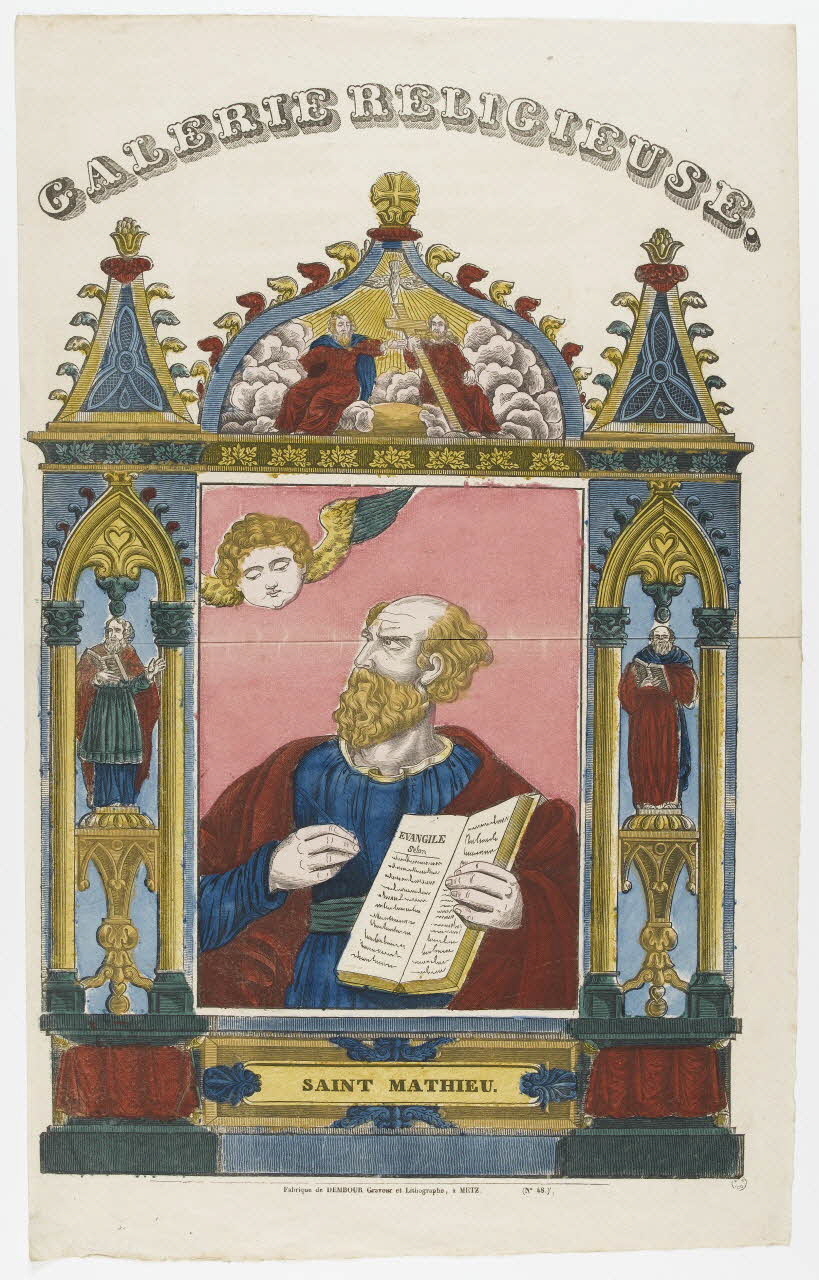 GALERIE RELIGIEUSE.
EVANGILE
Selon
SAINT MATHIEU.
Fabrique de DEMBOUR, Graveur et Lithographe, à METZ. (N° 48.)